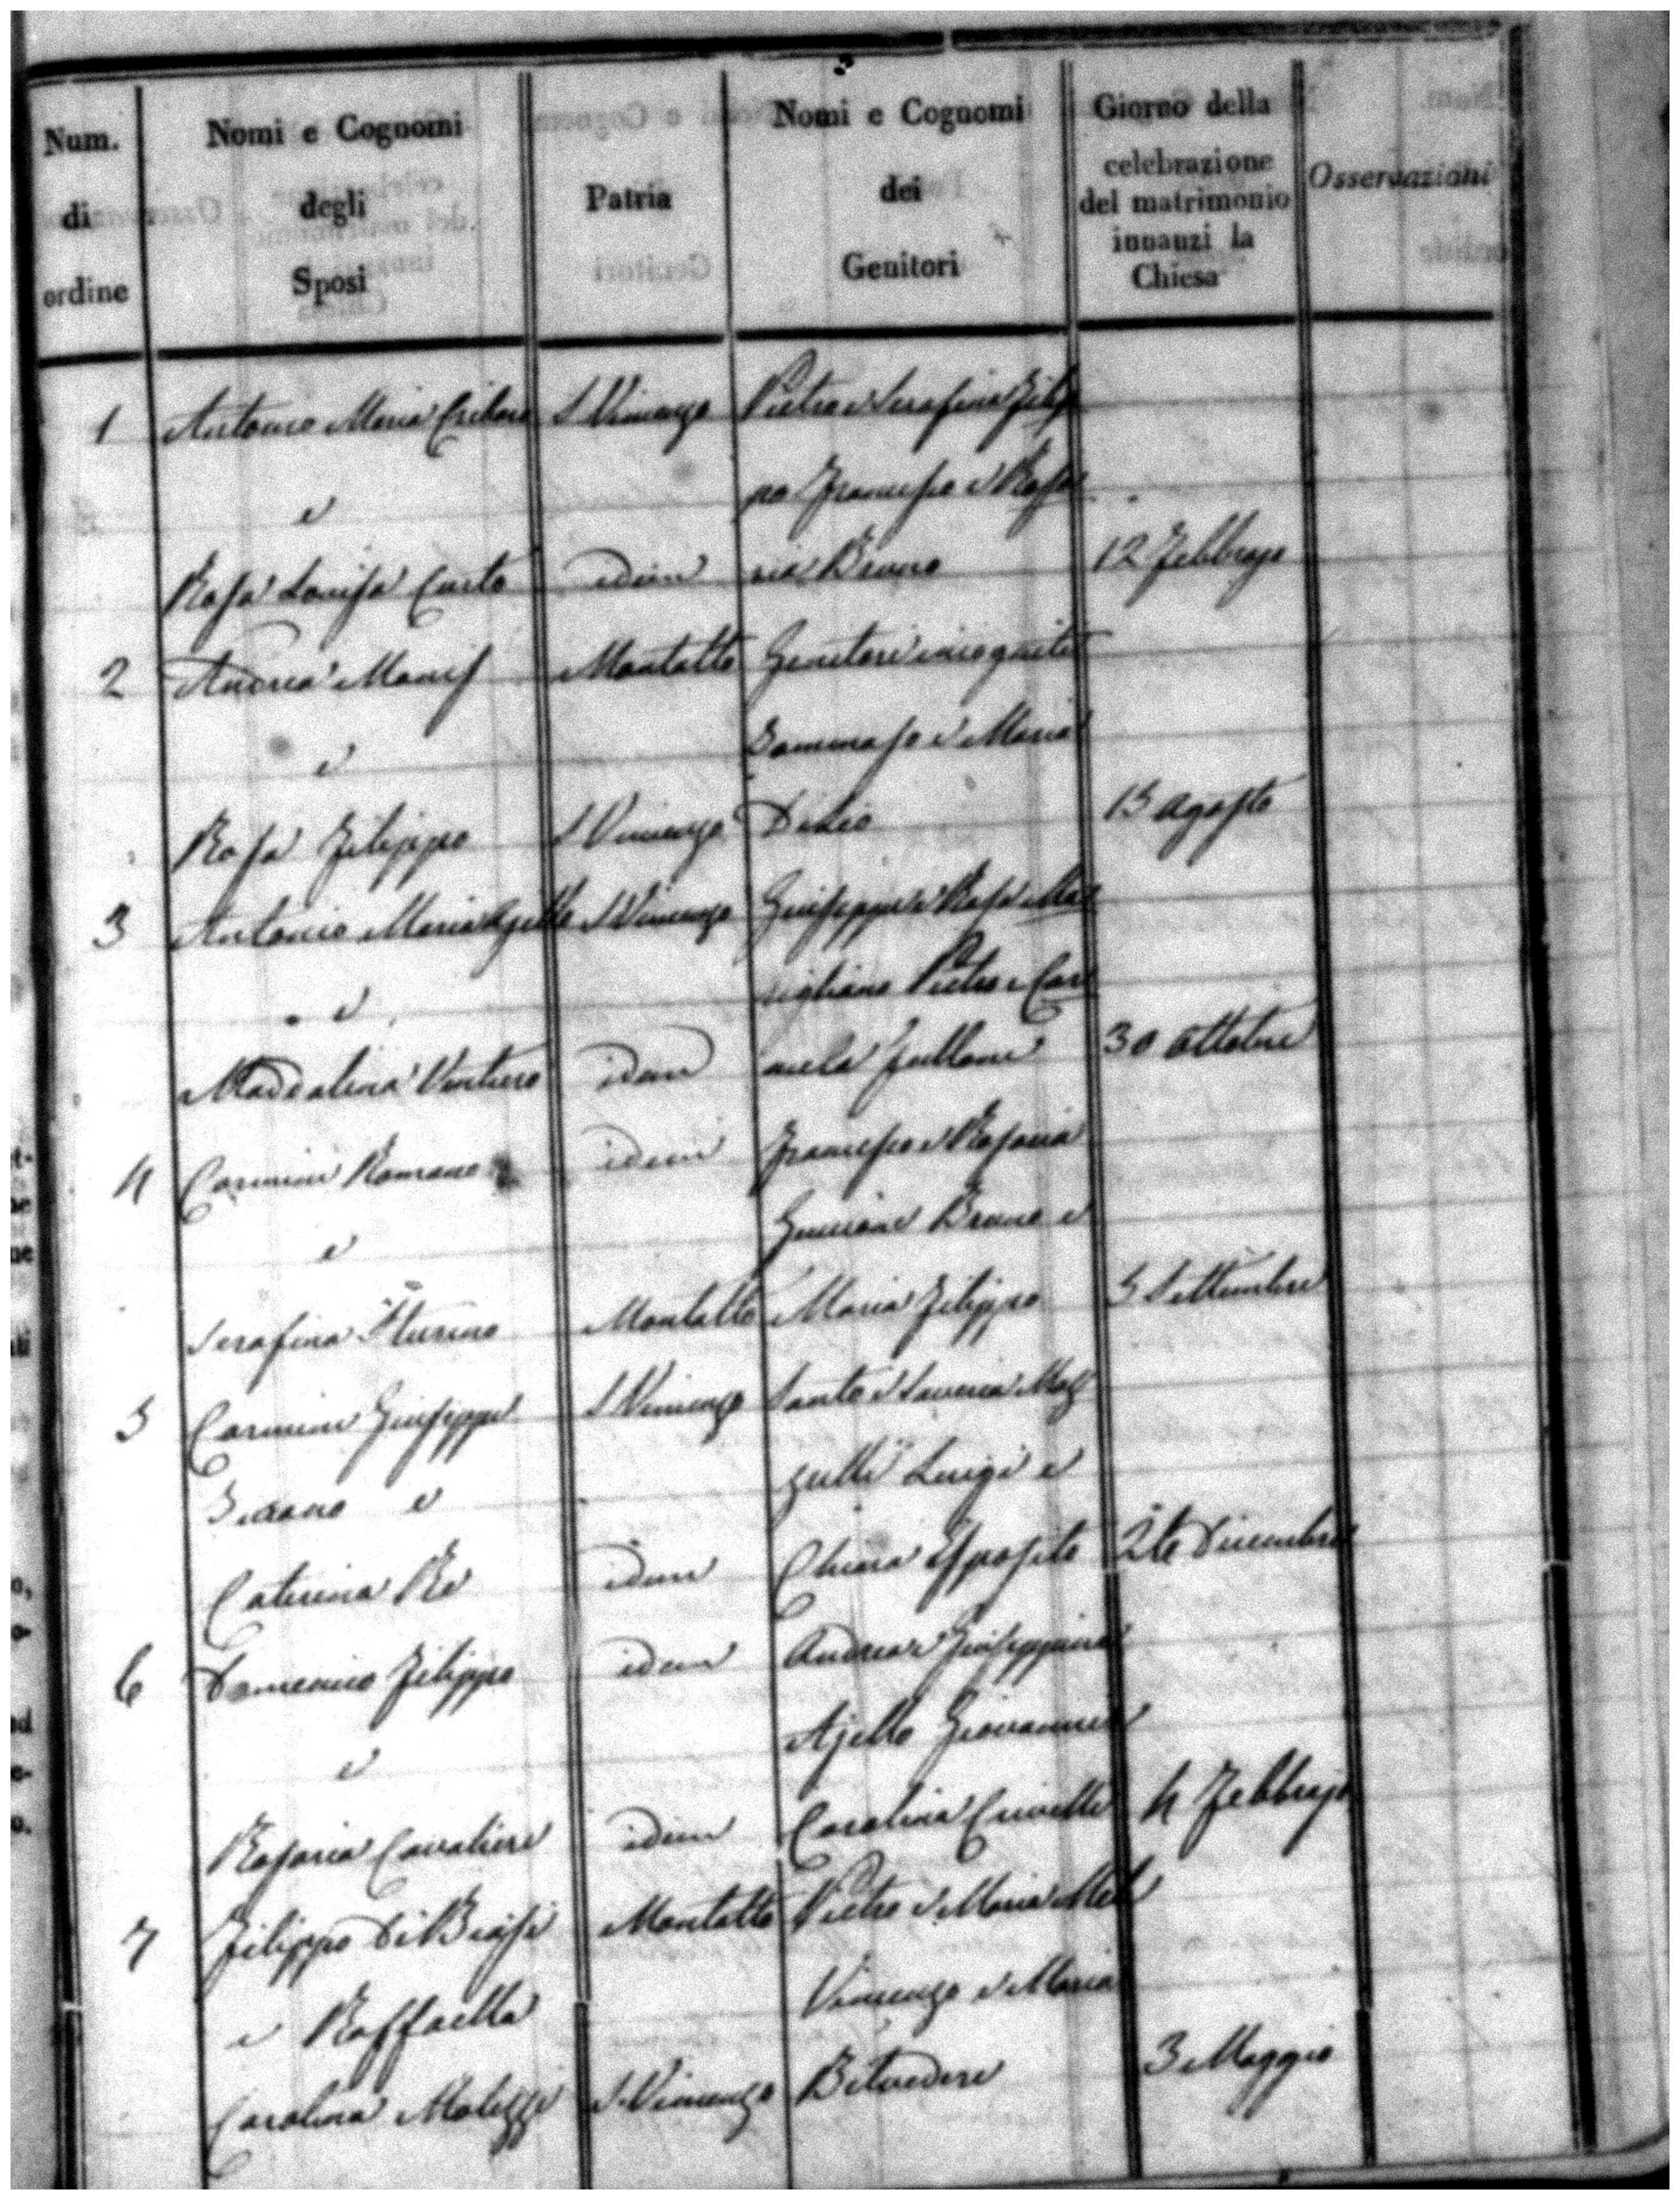 Num.
di
ordine
Nomi e Cognomi
degli
Sposi
Patria
Nomi e Cognomi
dei
Genitori
Giorno della
celebrazione
del matrimonio
innanzi la
Chiesa
Osservazioni
1 Antonio Maria S. Vincenzo Pietro e Serafina Filip
e po Francesco e Rosa
Rosa Louisa Curto idem ria Bruno 12 Febbrajo
2 Andrea Montalto Genitori incogniti
e Tommaso e Maria
Rosa Filippo S. Vincenzo 15 Agosto
3 Antonio Maria Ajello S. Vincenzo Giuseppe e Rosa Mar
e sigliano Pietro e Car
Maddalena Ventura idem mela Fullone 30 Ottobre
4 Carmine Romano idem Francesco e Rosaria
e Bruno e
Serafina Sturino Montalto Maria Filippo 5 Settembre
5 Carmine Giuseppe S. Vincenzo Santo e Saveria Maz
e zulli Luigi e
Caterina Re idem Chiara Esposito 26 Dicembre
6 Domenico Filippo idem Andrea e Giuseppina
e Ajello Giovanni e
Rosaria Cavaliere idem Carolina Crivelli 4 Febbrajo
7 Filippo Di Biasi Montalto Pietro e Maria
e Raffaella Vincenzo e Maria
Carolina Molezzi S. Vincenzo Belvedere 3 Maggio